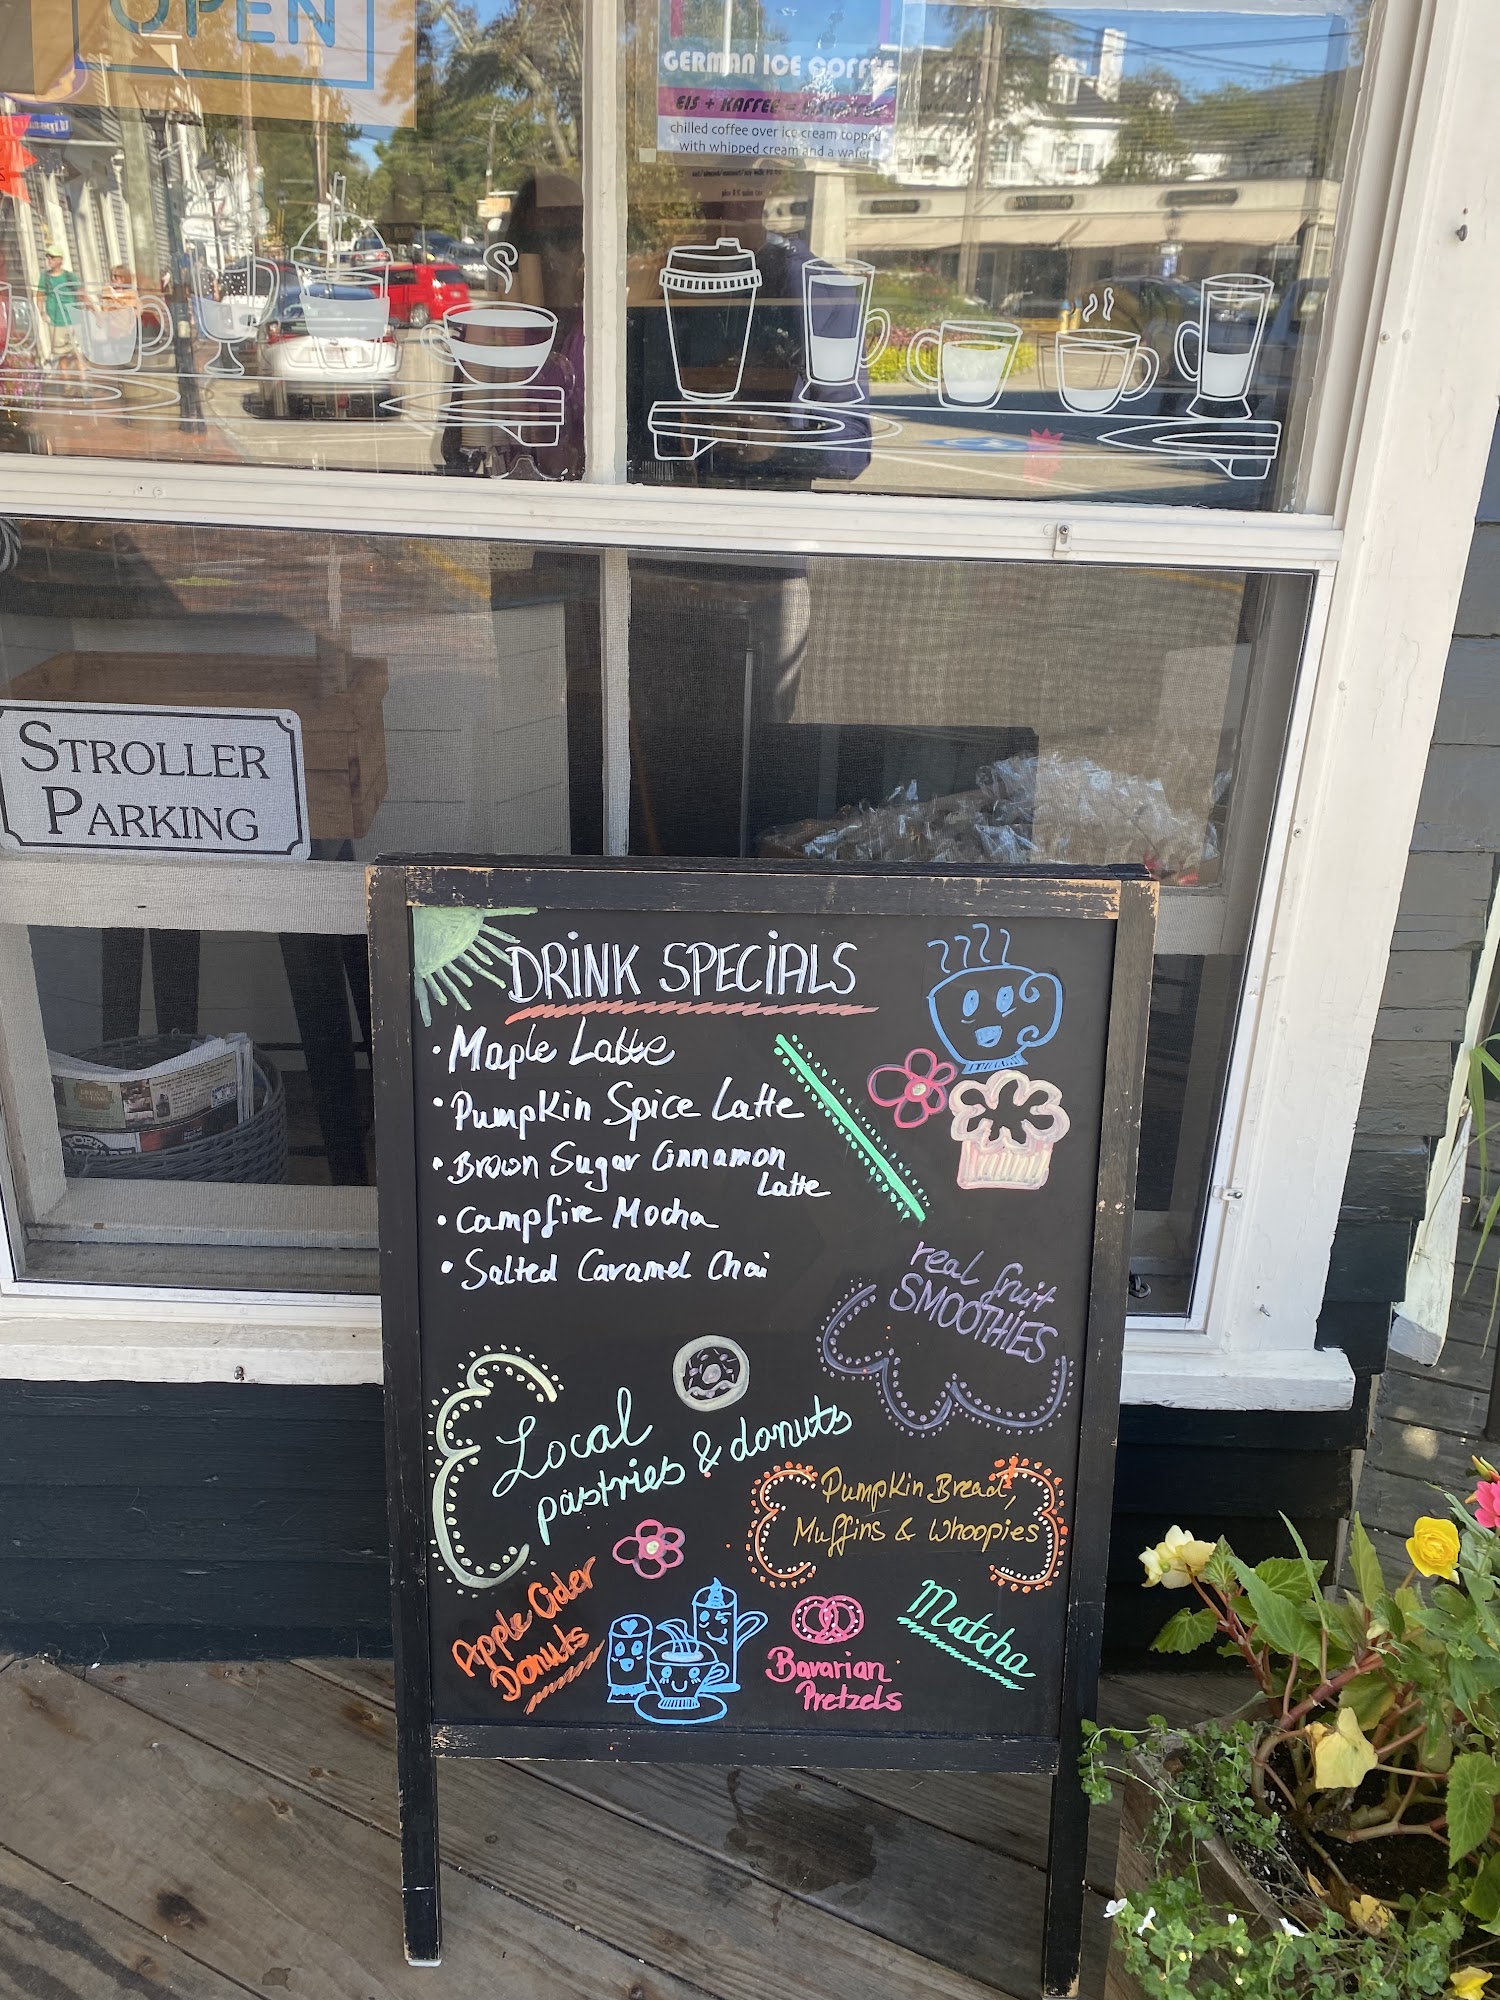 OPEN
GERMAN ICE COFFEE
EIS + KAFFEE = EISKAFFEE
chilled coffee over ice cream topped
with whipped cream and a wafer
STROLLER
PARKING
DRINK SPECIALS
• Maple Latte
• Pumpkin Spice Latte
• Brown Sugar Cinnamon
Latte
• Campfire Mocha
• Salted Caramel Chai
real fruit
SMOOTHIES
Local
pastries & donuts
Pumpkin Bread,
Muffins & Whoopies
Apple Cider
Donuts
Bavarian
Pretzels
Matcha